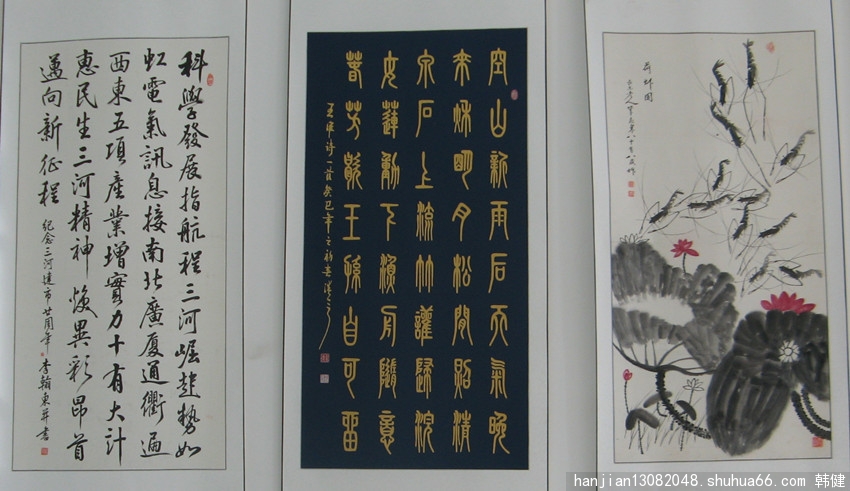 科學發展指航程三河崛起勢如
虹電氣訊息接南北廣廈通衢遍
西東五項產業增實力十有大計
惠民生三河精神煥異彩昂首
邁向新征程
紀念三河建市廿周年 李翰東并書
空山新雨后天氣晚
來秋明月松間照清
泉石上流竹讙歸浣
女蓮動下漁舟隨意
春芳歇王孫自可留
王維詩一首癸巳年之初
荷蝦圖
hanjian13082048.shuhua66.com 韩健